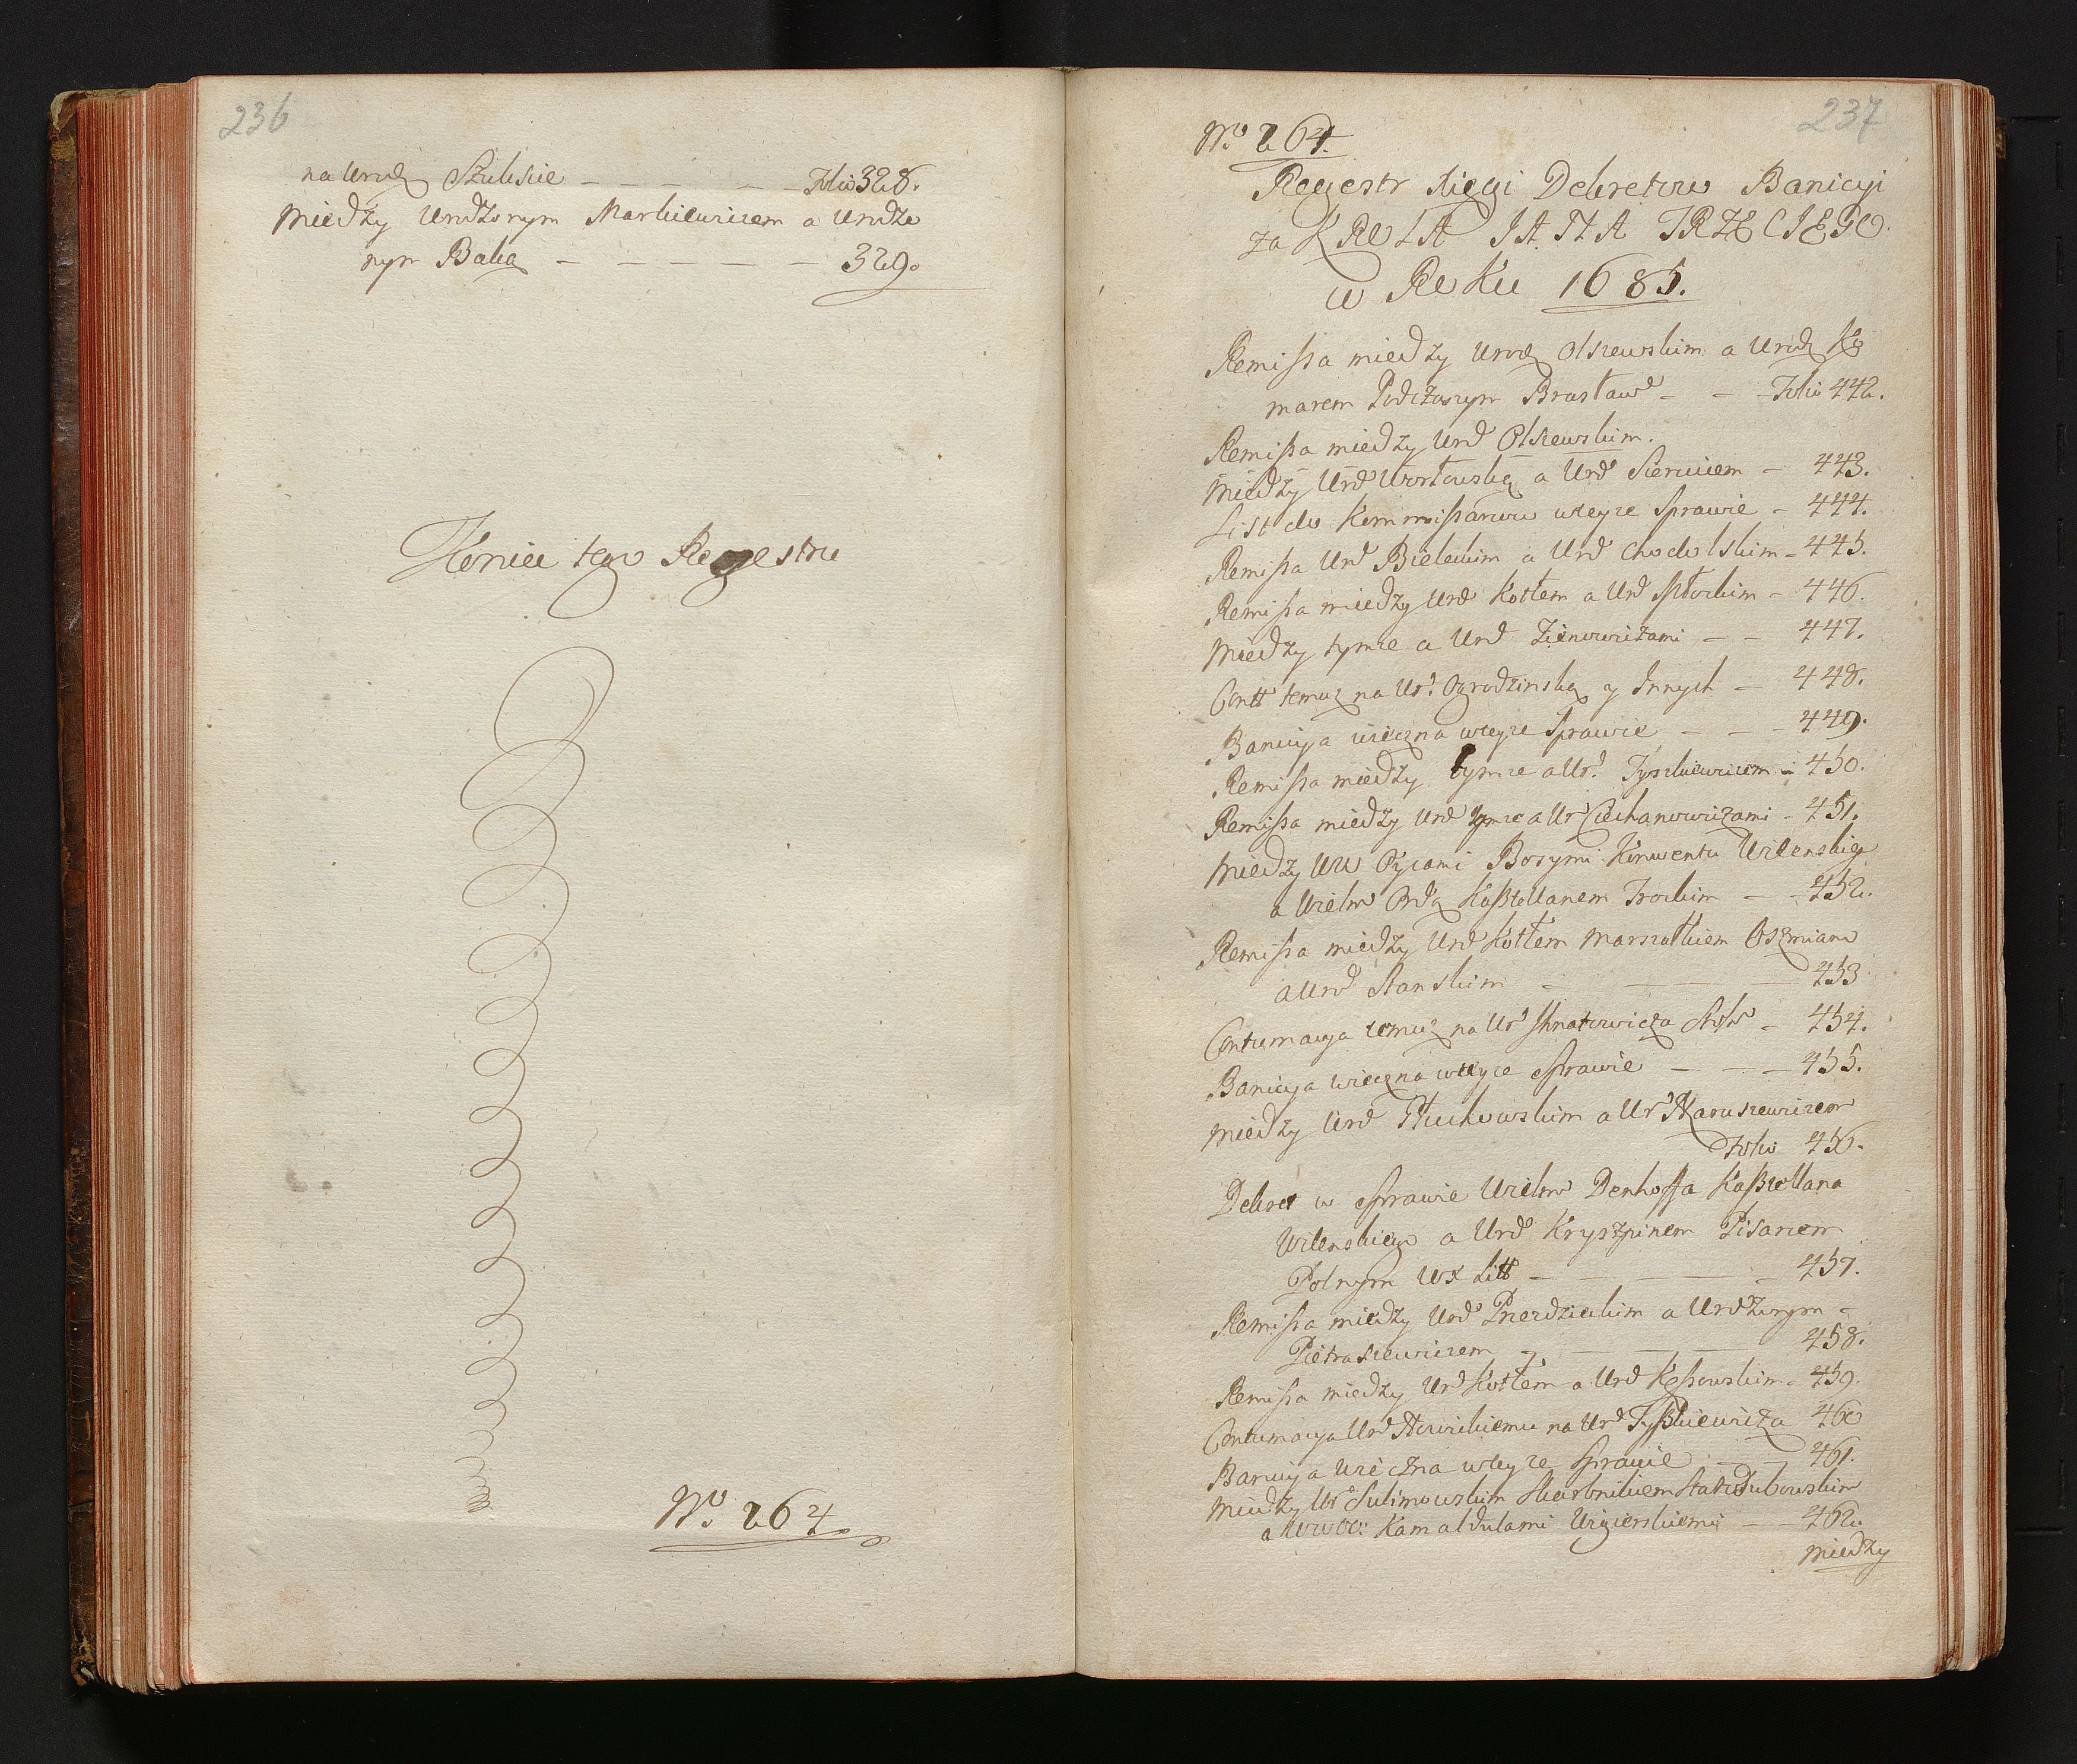 236
na Urodz Szulskie — — — — Folio 328.
Między Urodzonym Markiewiczem a Urodzo
nym Baką — — — — — — 329.
Koniec tego Regestru
No. 264.
237
No. 264.
Regestr Xięgi Dekretow Banicyi
za KROLA JANA TRZECIEGO.
w RoKu 1685.
Remissa między Urodz Olszewskim a Urodz Ko
marem Podczaszym Brasław — — Folio 442.
Remissa między Urd Olszewskim.
Między Urd Worłowską a Urd Siemciem — 443.
List do Kommissarzow wteyze Sprawie — 444.
Remissa Urd Bieleckim a Urd Chodolskim — 445.
Remissa między Urd Kotłem a Urd — 446.
Między tymze a Urd Zienowiczami — — 447.
Contt temuz na Ur. Ogrodzinską y Innych — 448.
Banicya wieczna wteyze Sprawie — — — 449.
Remissa między tymze a Ur. Tyszkiewiczem — 450.
Remissa między Urd tymze a Ur Ciechanowiczami — 451.
Między WW Oycami Bosymi Konwentu Wilenskigo
a Wielm Kasztellanem Trockim — — 452.
Remissa między Urd Kotłem Marszałkiem Oszmian
a Urd Stanskim — — — — 453
Contumacya temuz na Ur Ihnatowicza — 454.
Banicya wieczna wteyze Sprawie — — — 455.
Między Urd Głuchowskim a Ur Naruszewiczem
Folio 456.
Dekret w Sprawie Wielm Denhoffa Kasztellana
Wilenskiego a Urd Kryszpinem Pisarzem
Polnym WX Litt — — — — — 457.
Remissa między Urd Przezdzieckim a Urodzonym —
Pietraszewiczem — — — — 458.
Remissa między Urd Kotłem a Urd Kossowskim — 459.
Contumacya Urd Nowickiemu na Urd Tyszkiewicza 460
Banicya wieczna wteyze Sprawie — — 461.
Między Ur Sulimowskim Skarbnikiem Starodubowskim
a Kamaldulami Wigierskiemi — 462.
Między